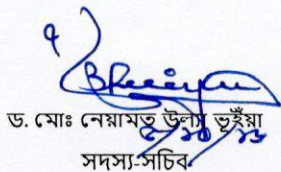 ড. মোঃ নেয়ামত উল্যা ভূইঁয়া
সদস্য-সচিব